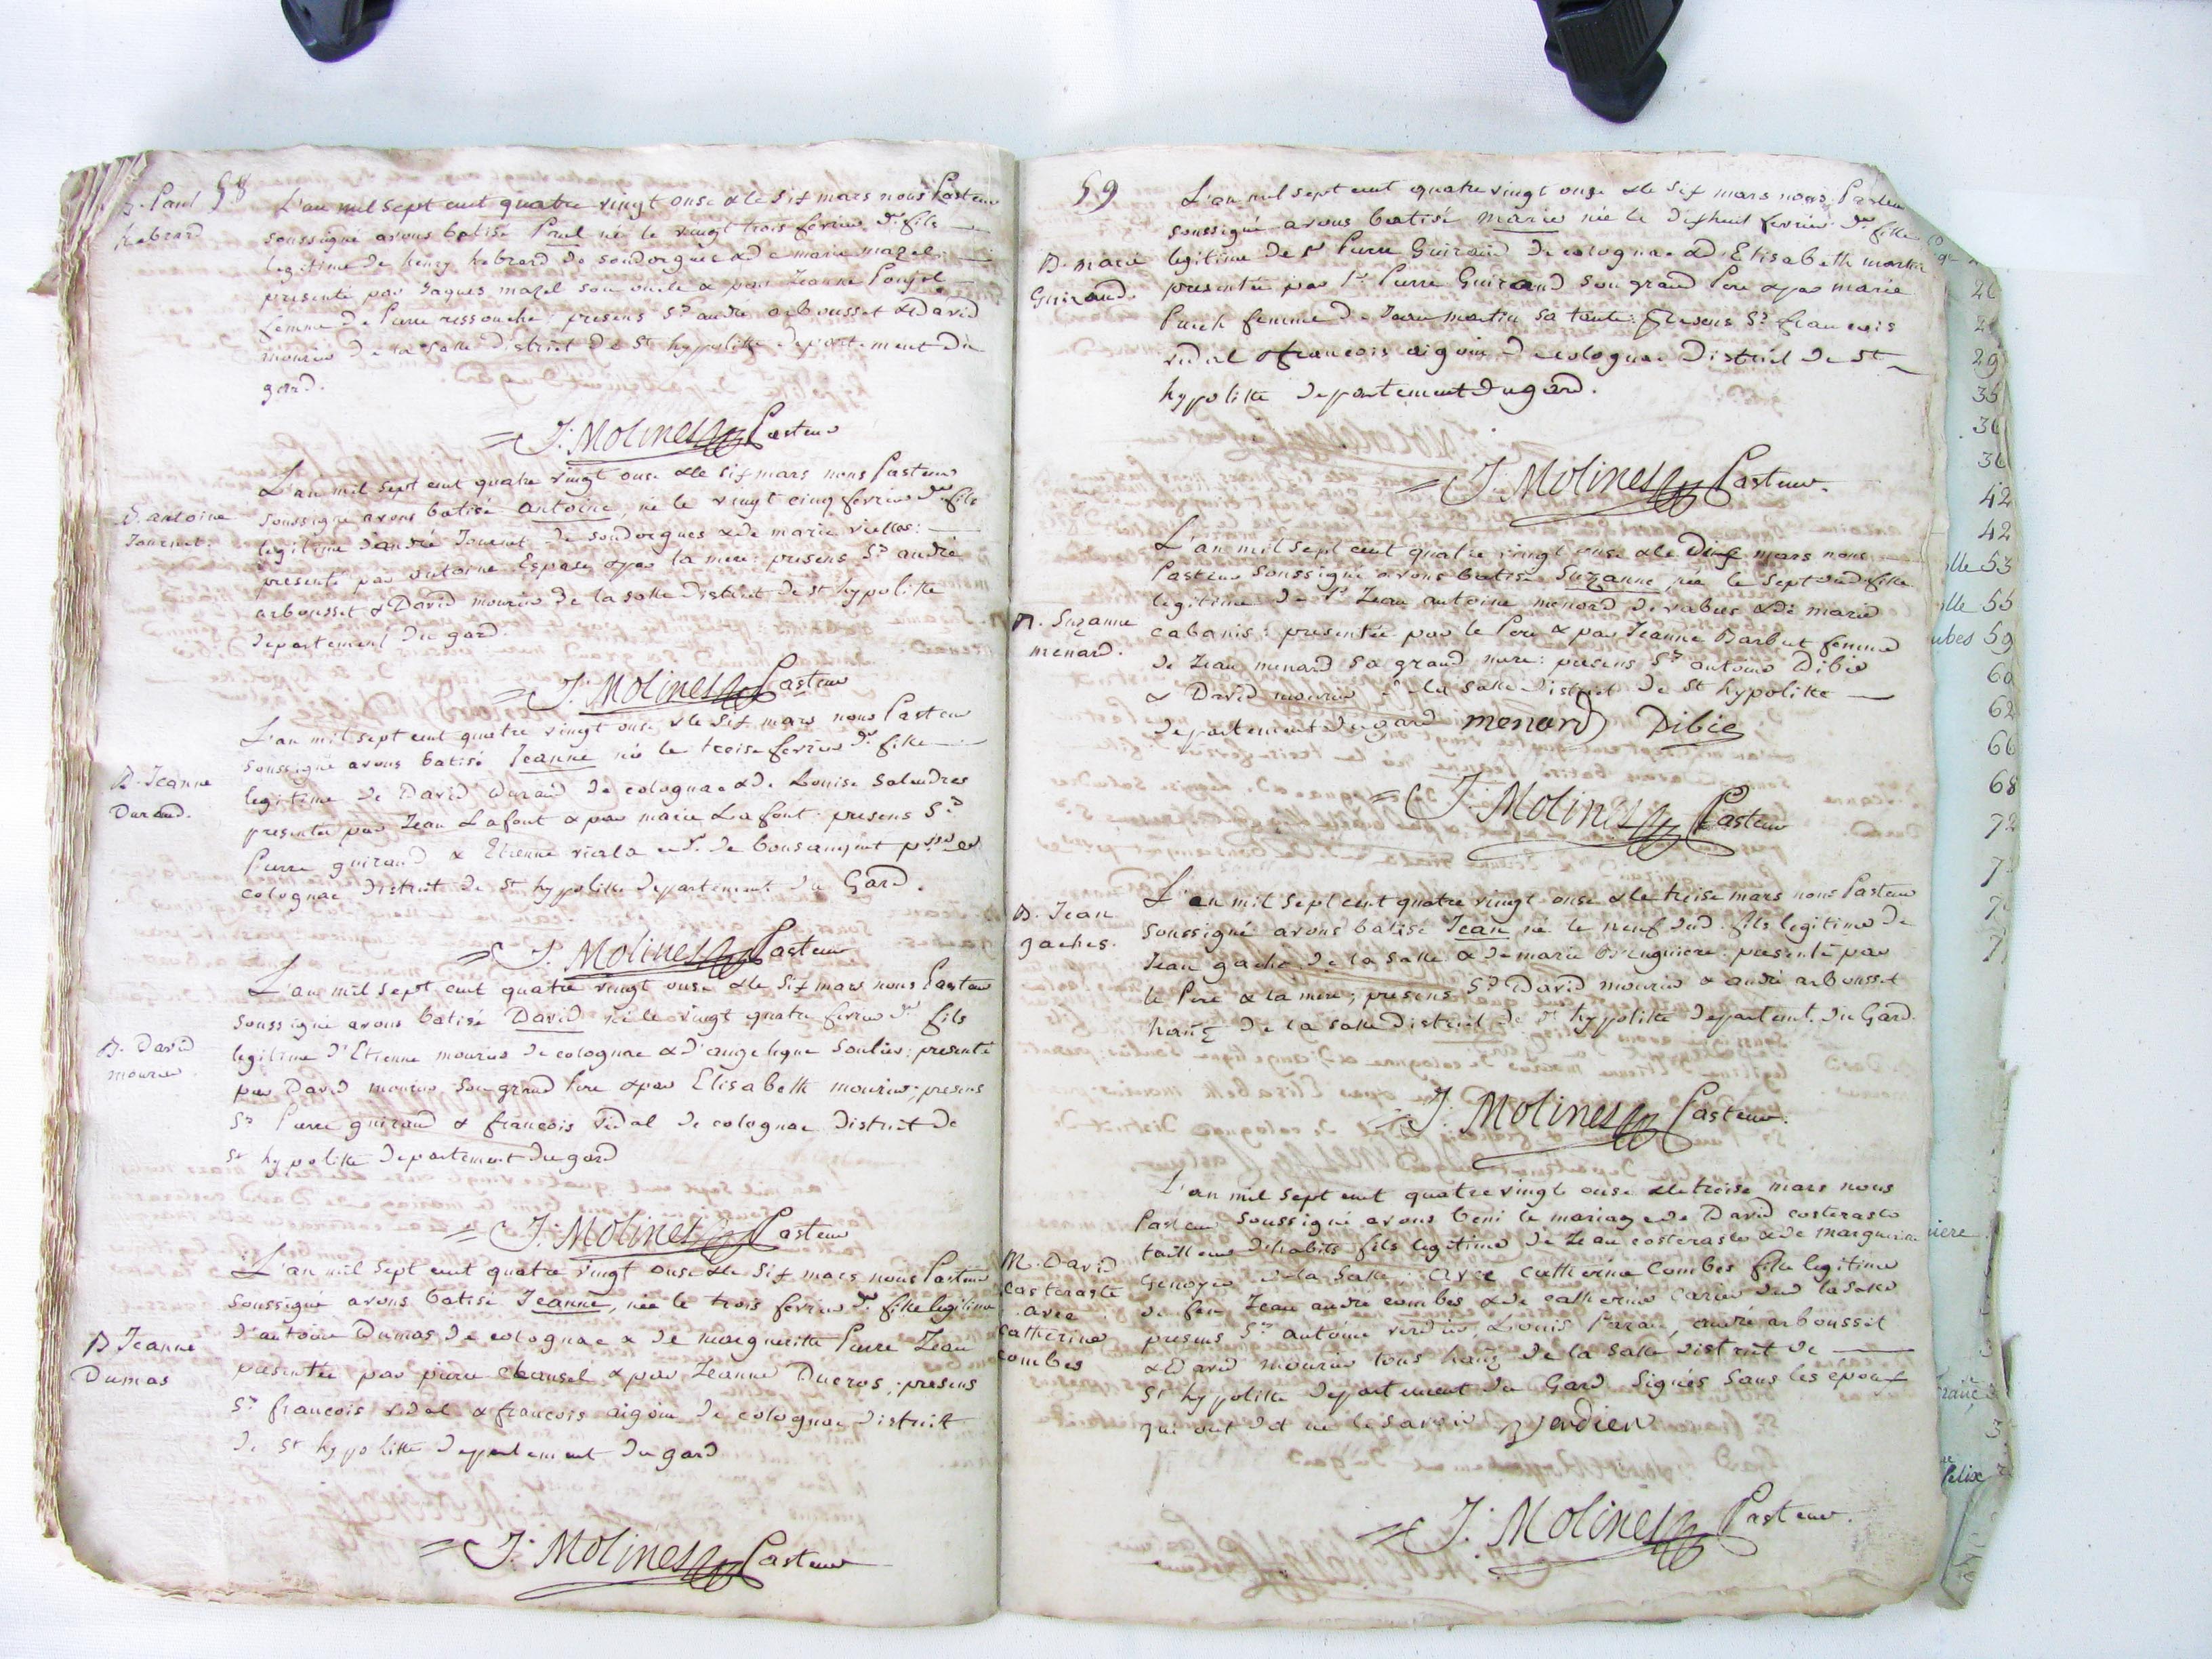 58
B. Paul
hebrard
L'an mil sept cent quatre vingt onse & le six mars nous Pasteur
soussigné avons batisé Paul né le vingt trois fevrier dr fils
legitime de henry hebrard de soudorgues & de marie mazel:
presenté par Jaques mazel son oncle & par Jeanne
femme de Pierre ressouche: presens Srs andré arbousset & David
mourier de la salle District de St hypolitte departement du
gard.
= J. Molines Pasteur
B. antoine
Journet.
L'an mil sept cent quatre vingt onse & le six mars nous Pasteur
soussigné avons batisé antoine, né le vingt cinq fevrier dr fils
legitime d'andré Journet de soudorgues & de marie vielles:
presenté par antoine Espase & par la mere: presens Srs andré
arbousset & David mourier de la salle District de St hypolitte
departement du gard.
= J. Molines Pasteur
B. Jeanne
Durand.
L'an mil sept cent quatre vingt onse & le six mars nous Pasteur
soussigné avons batisé Jeanne née le treise fevrier dr fille
legitime de David Durand de colognac & de Louise Salendres
presentée par Jean Lafont & par marie Lafont: presens Srs
Pierre guiraud & Etienne viala de
colognac District de St hypolitte departement du Gard.
= J. Molines Pasteur
B. David
mourier
L'an mil sept cent quatre vingt onse & le six mars nous Pasteur
soussigné avons batisé David né le vingt quatre fevrier dr fils
legitime d'Etienne mourier de colognac & d'angelique Soulier: presenté
par David mourier son grand Pere & par Elisabeth mourier; presens
Srs Pierre guiraud & françois Vidal de colognac District de
St hypolitte departement du gard
= J. Molines Pasteur
B Jeanne
Dumas
L'an mil sept cent quatre vingt onse & le six mars nous Pasteur
soussigné avons batisé Jeanne, née le trois fevrier dr fille legitime
d'antoine Dumas de colognac & de marguerite Pierre Jean
presentée par pierre & par Jeanne Ducros; presens
Srs françois vidal & françois aigoin de colognac District
de St hypolitte departement du gard
= J. Molines Pasteur
59
B. marie
Guiraud.
L'an mil sept cent quatre vingt onse & le six mars nous Pasteur
soussigné avons batisé marie née le dixhuit fevrier dr fille
legitime de Sr Pierre Guiraud de colognac & d'Elisabeth martin
presentée par Sr Pierre Guiraud son grand Pere & par marie
Puech femme de Jean martin sa tante: presens Srs françois
vidal & françois aigoin de colognac District de St
hypolitte departement du gard.
= J. Molines Pasteur.
B. Suzanne
menard.
L'an mil sept cent quatre vingt onse & le Dix mars nous
Pasteur soussigné avons batisé Suzanne, née le sept dud fille
legitime de Sr Jean antoine menard de vabres & de marie
cabanis: presentée par le Pere & par Jeanne Barbut femme
de Jean menard sa grand mere: presens Srs antoine Dibie
& David mourier de la salle District de St hypolitte
departement du gard menard Dibie
= J. Molines Pasteur
B. Jean
gaches.
L'an mil sept cent quatre vingt onse & le treise mars nous Pasteur
soussigné avons batisé Jean né le neuf dud. fils legitime de
Jean gache de la salle & de marie Bruguiere: presenté par
le Pere & la mere; presens Srs David mourier & andré arbousset
de la salle District de St hypolitte departemt. du Gard.
= J. Molines Pasteur.
M. David
Costeraste
avec
Catherine
Combes
L'an mil sept cent quatre vingt onse & le treise mars nous
Pasteur soussigné avons beni le mariage de David costeraste
tailleur d'habits fils legitime de Jean costeraste & de marguerite
de la salle, avec catherine Combes fille legitime
de feu Jean andré combes & de catherine dud lasalle
presens Srs antoine verdier, Louis Paran, andré arbousset
& David mourier tous de la salle District de
St hypolitte departement du Gard signés sans les epoux
qui ont dit ne le savoir Verdier
= J. Molines Pasteur.
29
35
42
42
53
55
59
62
66
68
72